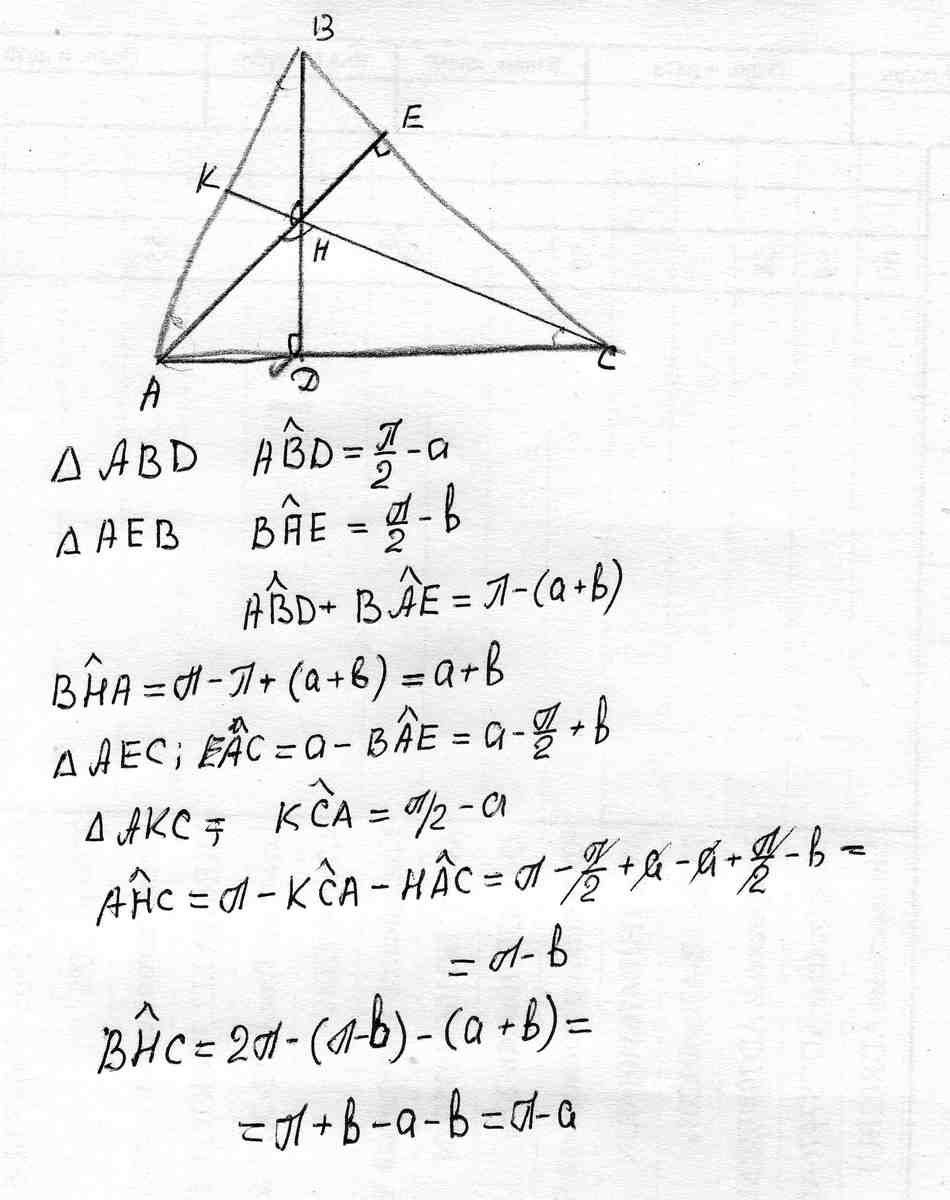 B
E
K
H
A
D
C
Δ ABD AB̂D = π/2 - a
Δ AEB BÂE = π/2 - b
AB̂D + BÂE = π - (a + b)
BĤA = π - π + (a + b) = a + b
Δ AEC; EÂC = a - BÂE = a - π/2 + b
Δ AKC; KĈA = π/2 - a
AĤC = π - KĈA - HÂC = π - π/2 + a - a + π/2 - b =
= π - b
BĤC = 2π - (π - b) - (a + b) =
= π + b - a - b = π - a